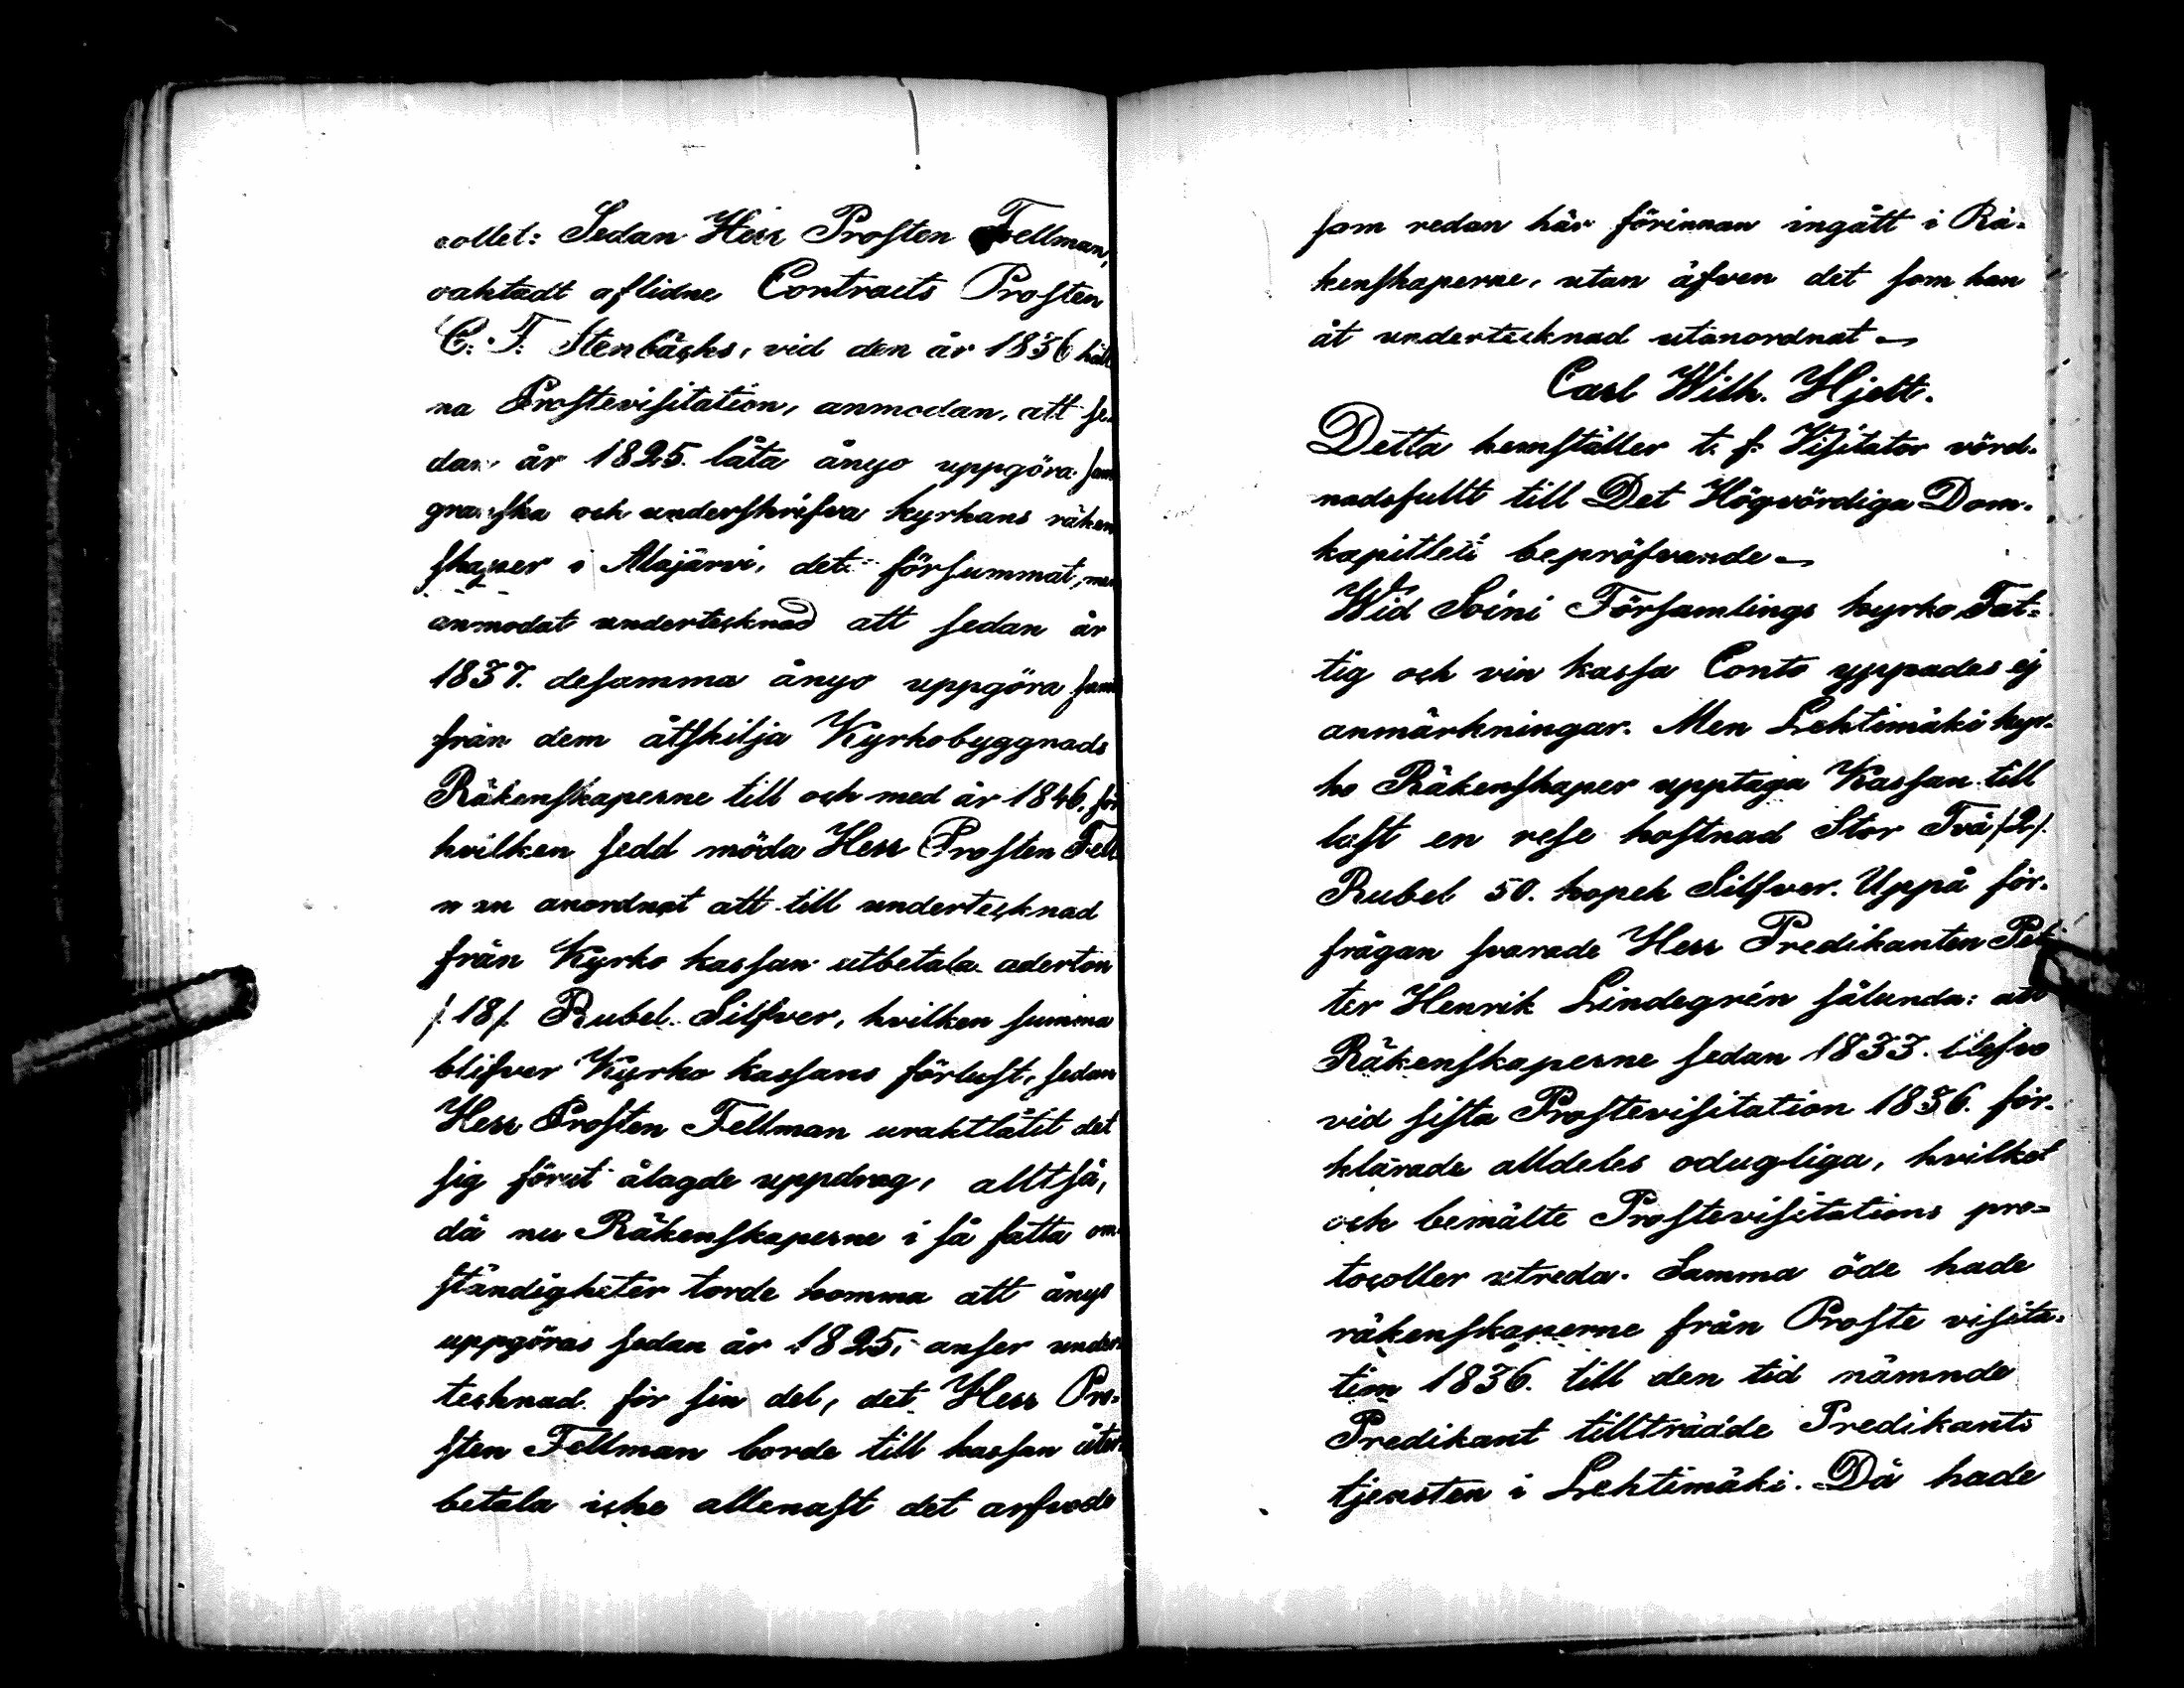 collet: Sedan Herr Prosten Fellman,
oaktadt aflidne Contracts Prosten
C. F. Stenbäcks, vid den år 1836 håll
na Prostevisitation, anmodan, att se
dan år 1825. låta ånyo uppgöra sam
granska och underskrifva kyrkans räken
skaper i Alajärvi, det försummat, men
anmodat undertecknad att sedan år
1837. desamma ånyo uppgöra samt
från dem åtskilja Kyrkobyggnads
Räkenskaperne till och med år 1846. för
hvilken sedd möda Herr Prosten Fell
man anordnat att till undertecknad
från Kyrko kassan utbetala aderton
/.18/. Rubel Silfver, hvilken summa
blifver Kyrko kassans förlust, sedan
Herr Prosten Fellman uraktlåtit det
sig förut ålagde uppdrag, alltså,
då nu Räkenskaperne i så fatta om
ständigheter torde komma att ånyo
uppgöras sedan år 1825, anser under
tecknad för sin del, det Herr Pro-
sten Fellman borde till kassan åter
betala icke allenast det arfvode
som redan här förinnan ingått i Rä-
kenskaperne, utan äfven det som han
åt undertecknad utanordnat –
Carl Wilh. Hjelt.
Detta hemställer t. f. Visitator vörd-
nadsfullt till Det Högvördiga Dom-
kapitlets bepröfvande –
Wid Soini Församlings kyrko, Fat-
tig och vin kassa Conto yppades ej
anmärkningar. Men Lehtimäki kyr-
ko Räkenskaper upptaga Kassan till
last en rese kostnad Stor Två /2/.
Rubel 50. kopek Silfver. Uppå för-
frågan svarade Herr Predikanten Pet-
ter Henrik Lindegrén sålunda: att
Räkenskaperne sedan 1833. blefvo
vid sista Prostevisitation 1836. för-
klarade alldeles odugliga, hvilket
och bemälte Prostevisitations pro-
tocoller utreda. Samma öde hade
räkenskaperne från Proste visita-
tion 1836. till den tid nämnde
Predikant tillträdde Predikants
tjensten i Lehtimäki. Då hade